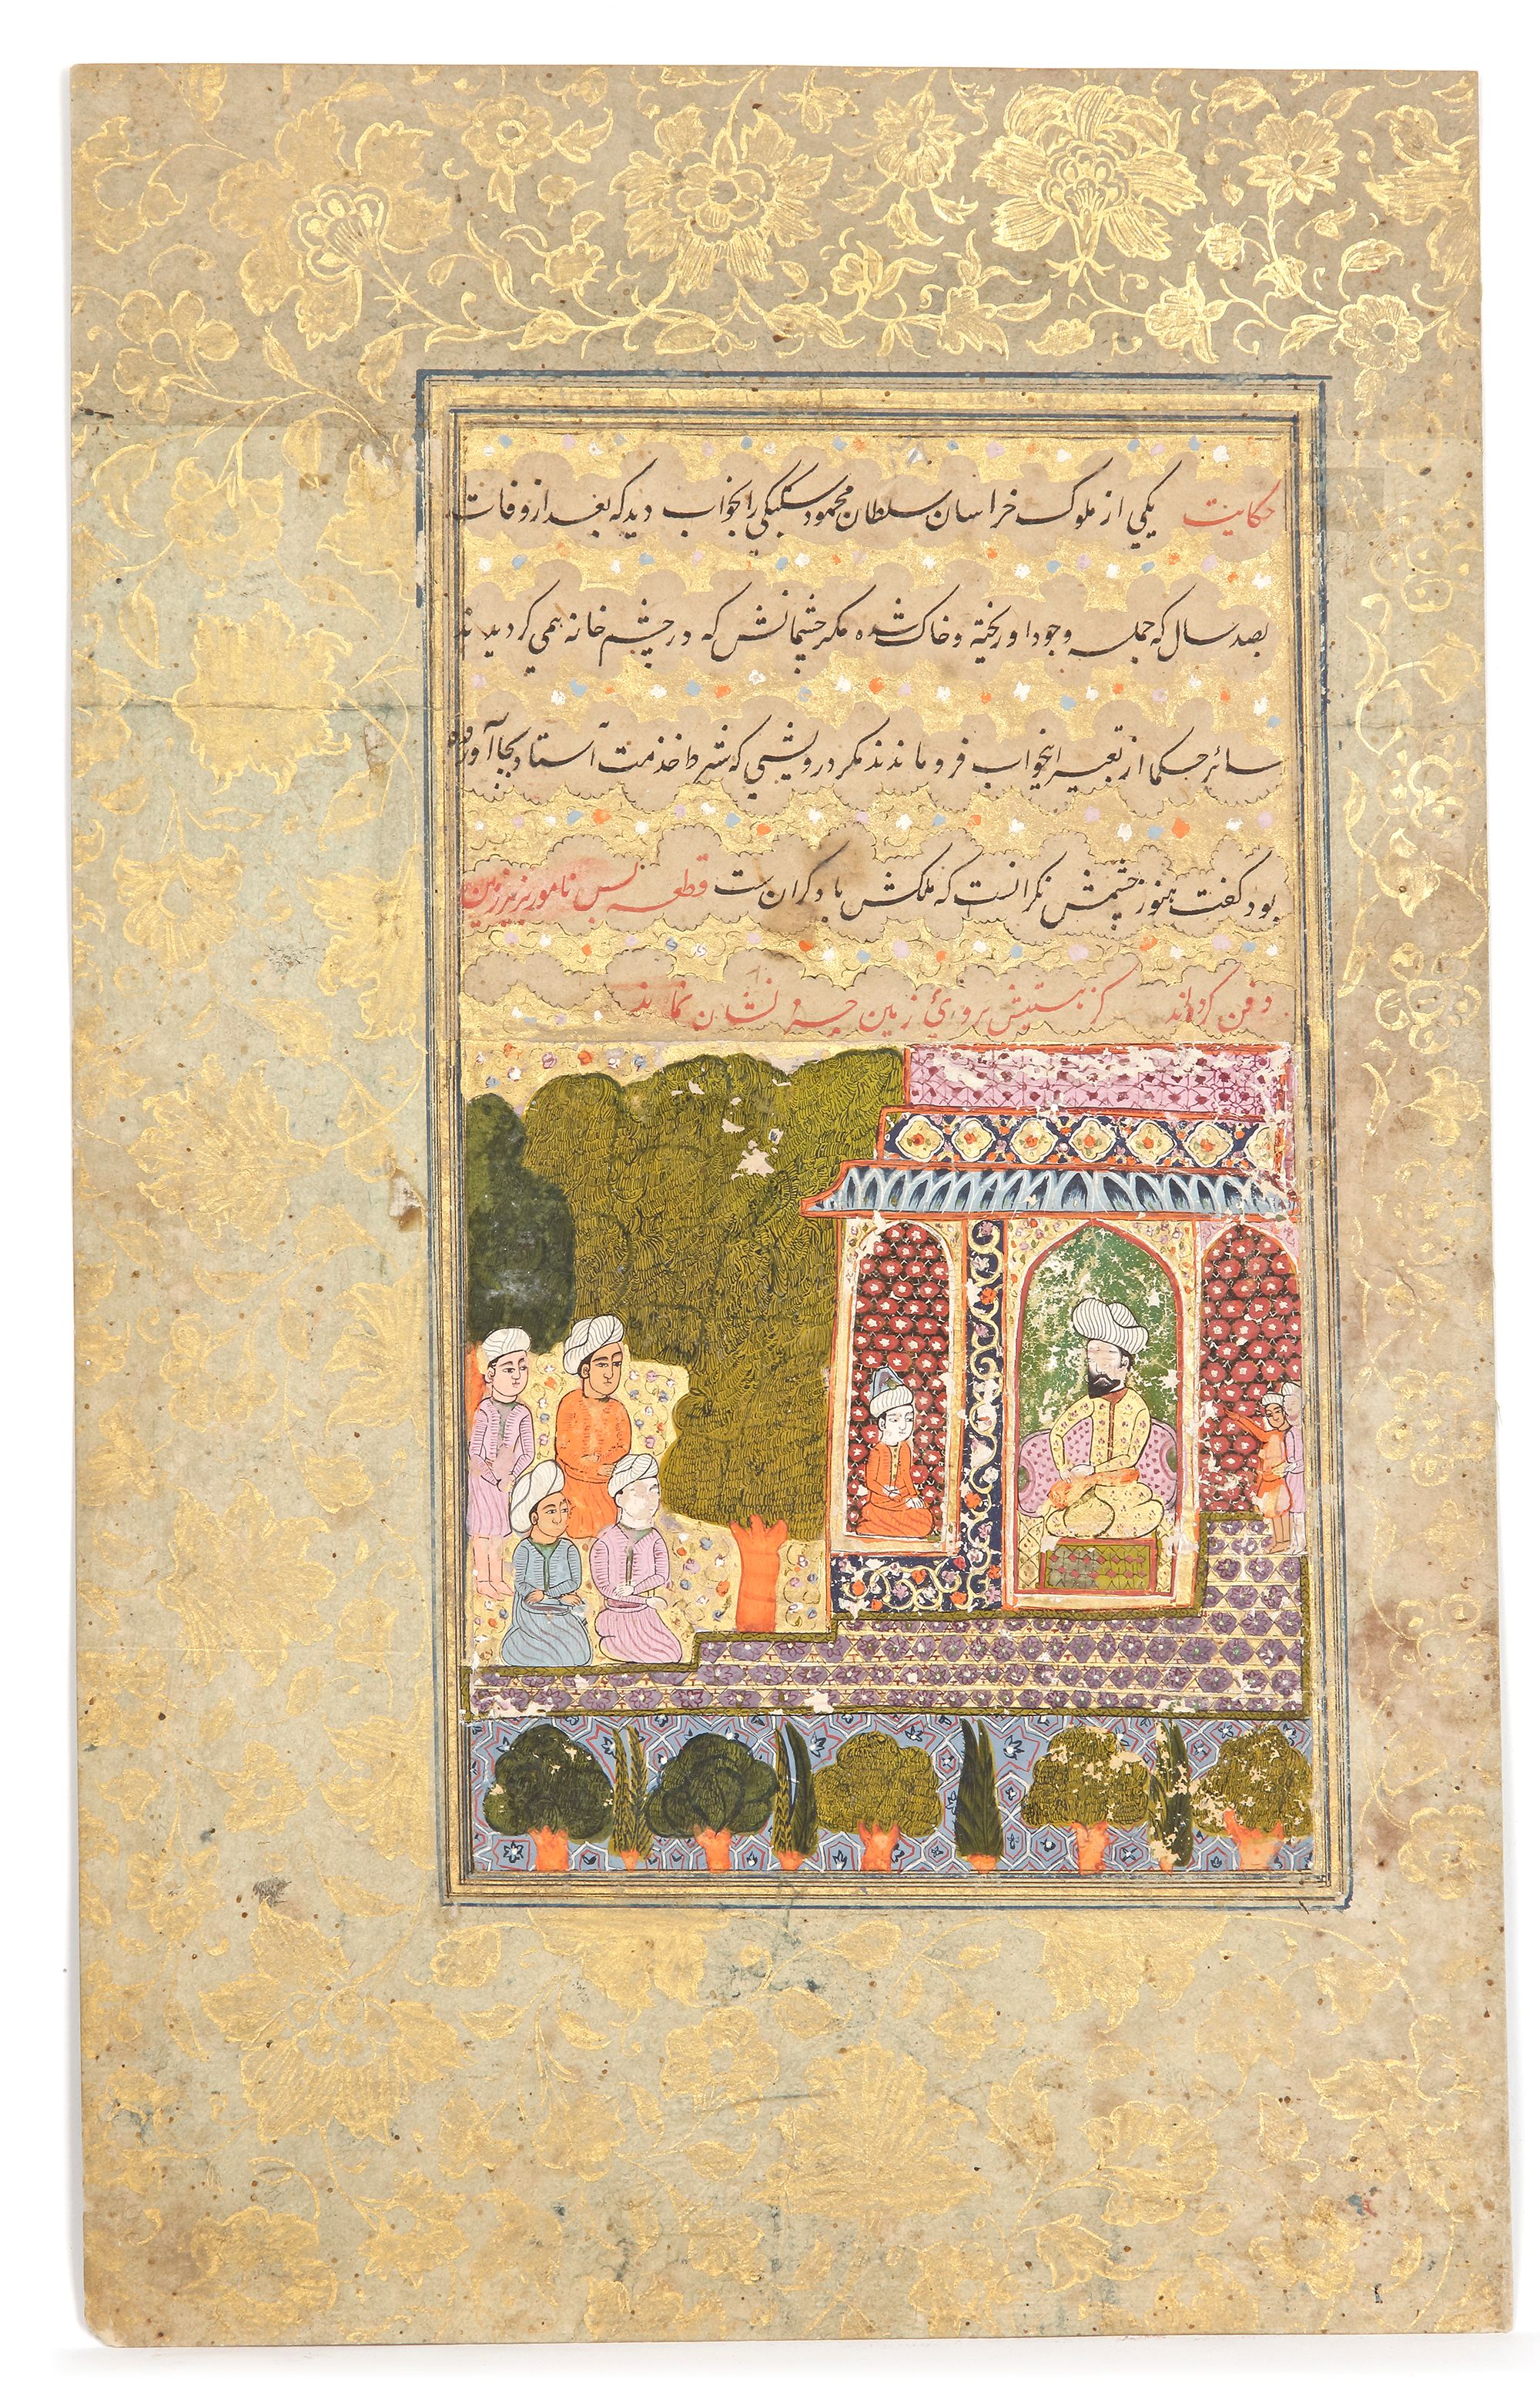 حکایت یکی از ملوک خراسان سلطان محمود سبکتکی را بخواب دید که بعد از وفات
بصد سال که جمله وجود او ریخته و خاک شده مکر چشمانش که در چشم خانه همی کردیدند
سائر حکما از تعبیر اینخواب فرو ماندند مکر درویشی که شرط خذمت استاد بجا آورده
بود کفت هنوز چشمش نکرانست که ملکش با دکران ست قطعه بس نامور بزیر زمین
دفن کرده‌اند کز هستیش بروی زمین بر نشان نماند